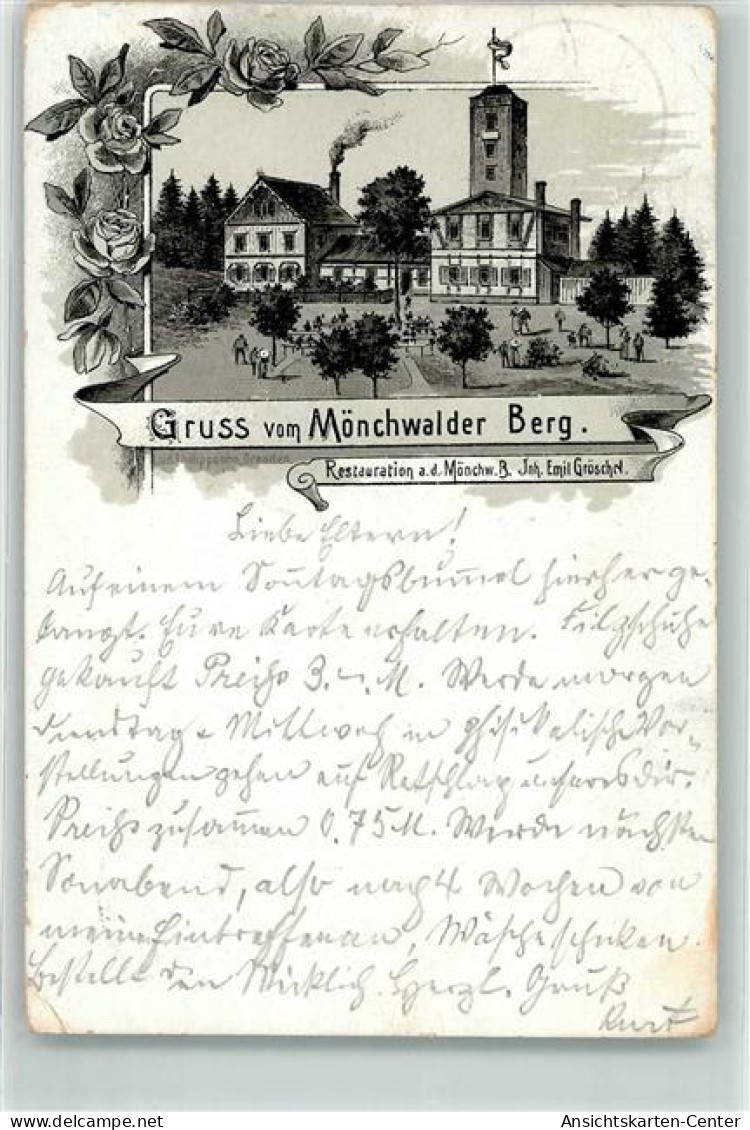 Gruss vom Mönchwalder Berg.
Restauration a.d. Mönchw. B. Inh. Emil Gröschel.
Liebe Eltern!
Auf einem Sonntagsbummel hierher ge-
langt. Eure Karte erhalten. Filzschuhe
gekauft Preihs 3.-. M. Werde morgen
Dienstag u Mittwoch in phisikalische Vor-
stellungen gehen auf Ratschlag unseres Dir.
Preihs zusammen 0,75 M. Werde nächsten
Sonabend, also nach 4 Wochen von
meine Eintreffen an, Wäsche schicken.
Bestelle den Herzl. Gruß
Kurt
delcampe.net
Ansichtskarten-Center